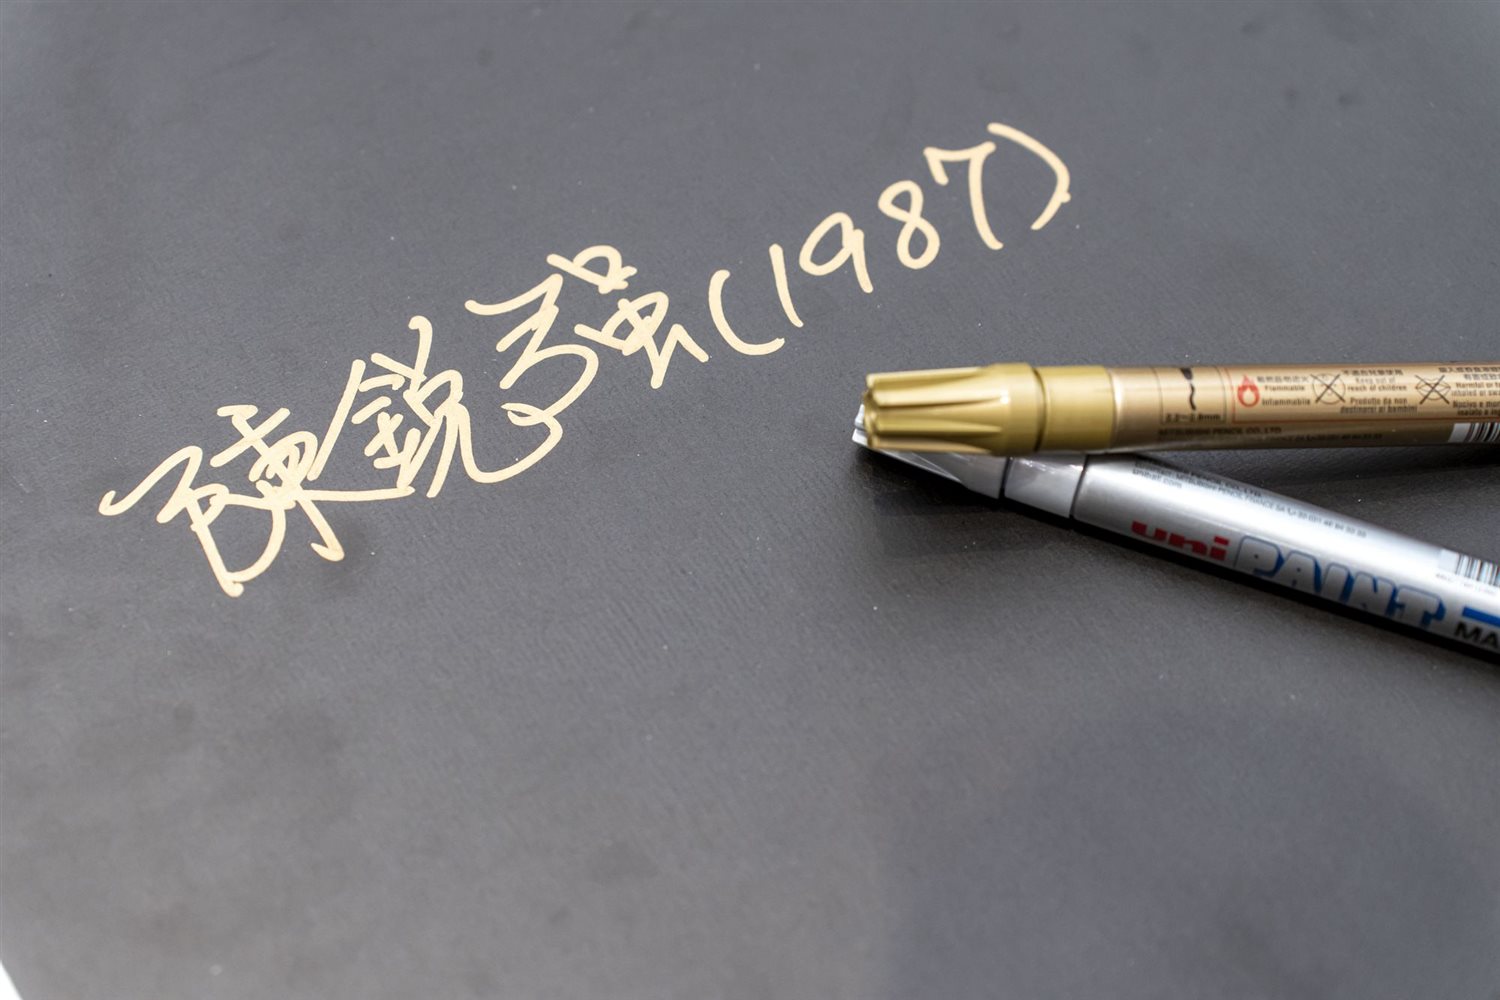 陳鋭强(1987)
Flammable
Inflammabile
Keep out of
reach of children
Prodotto da non
destinarsi ai bambini
MITSUBISHI PENCIL CO., LTD
uni PAINT
MA